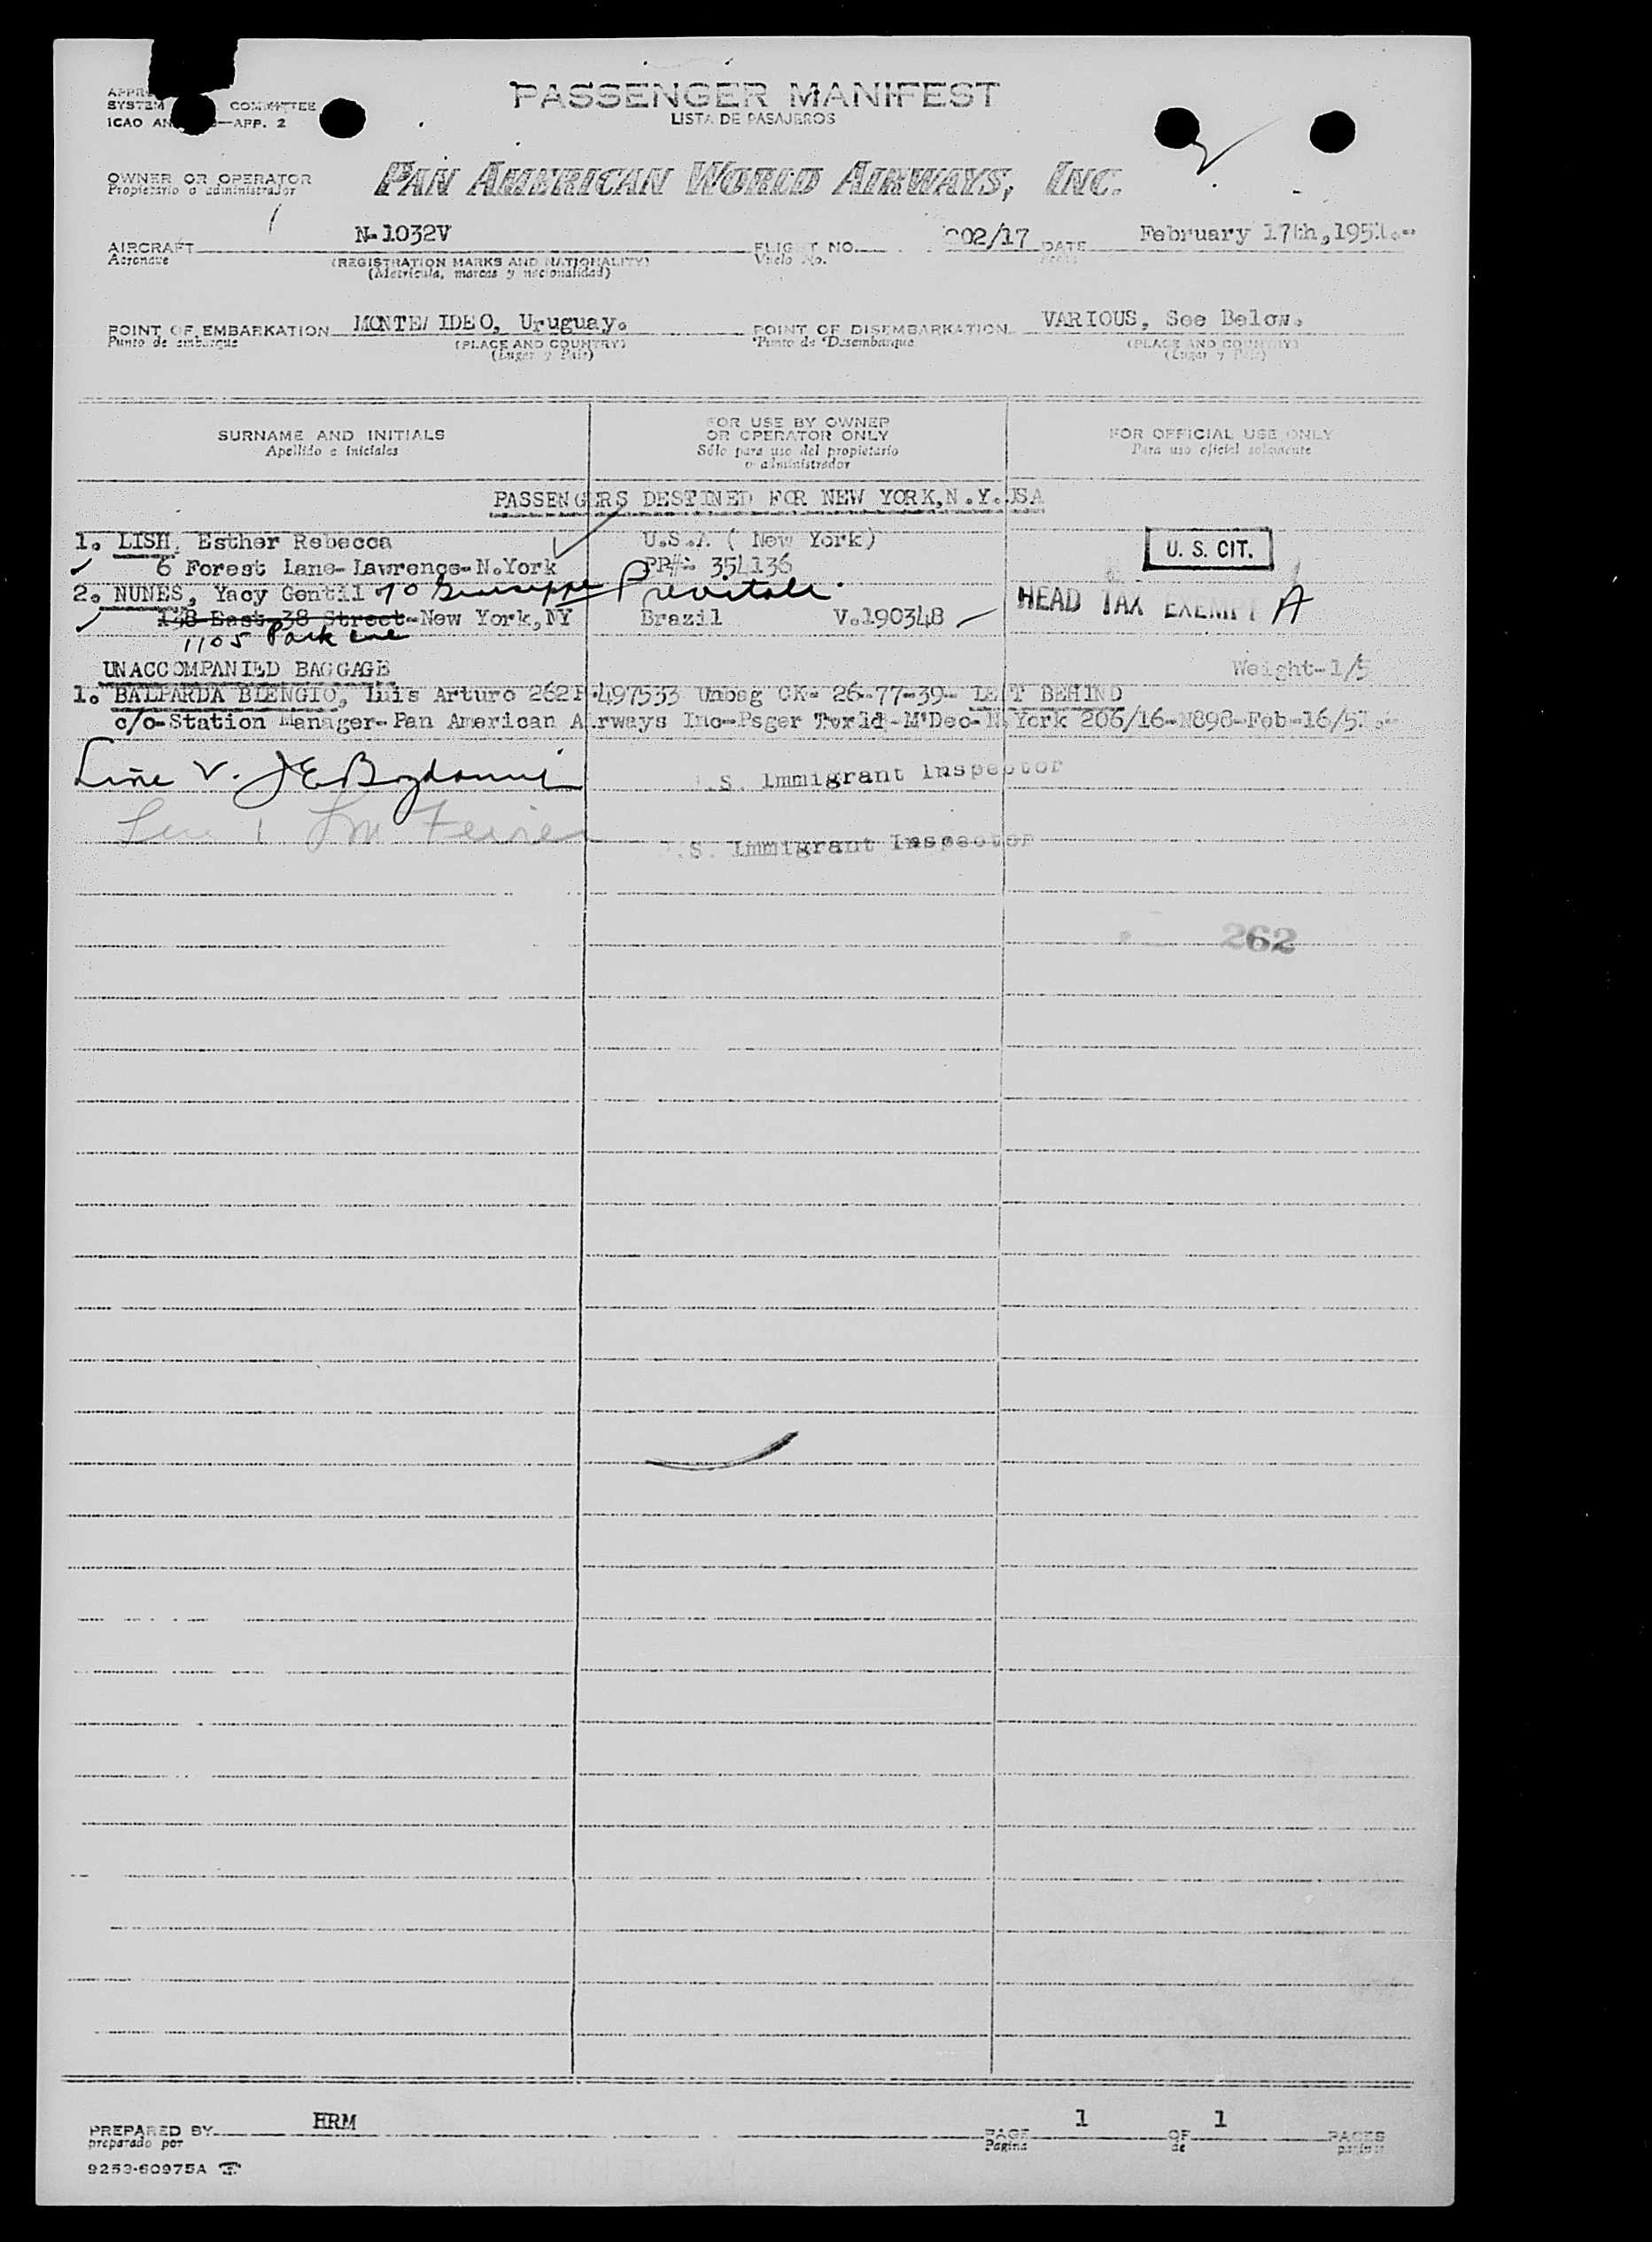 PASSENGER MANIFEST
LISTA DE PASAJEROS
SYSTEM COMMITTEE
ICAO —APP. 2
OWNER OR OPERATOR
Propietario o administrador
PAN AMERICAN WORLD AIRWAYS, INC.
AIRCRAFT N-1032V FLIGHT NO. 202/17 DATE February 17th, 1951.-
Aeronave (REGISTRATION MARKS AND NATIONALITY) Vuelo No.
(Matrícula, marcas y nacionalidad)
POINT OF EMBARKATION MONTEVIDEO, Uruguay. POINT OF DISEMBARKATION VARIOUS, See Below.
Punto de embarque (PLACE AND COUNTRY) Punto de Desembarque (PLACE AND COUNTRY)
(Lugar y País) (Lugar y País)
SURNAME AND INITIALS
Apellido e iniciales
FOR USE BY OWNER
OR OPERATOR ONLY
Sólo para uso del propietario
o administrador
FOR OFFICIAL USE ONLY
Para uso oficial solamente
PASSENGERS DESTINED FOR NEW YORK,N.Y.USA
1. LISH, Esther Rebecca U.S.A ( New York)
6 Forest Lane- Lawrence- N.York PP#: 354136 U. S. CIT.
2. NUNES, Yacy Gentil % Giuseppe Previtali.
148 East 38 Street-New York,NY Brazil V.190348 HEAD TAX EXEMPT A
1105 Park ave
UNACCOMPANIED BAGGAGE Weight-1/5
1. BALPARDA BLENGIO, Luis Arturo 262 497533 Unbag CK- 26-77-39- LEFT BEHIND
c/o-Station Manager-Pan American Airways Inc-Psger -M'Deo-N.York 206/16-N898-Feb-16/51.-
Line V. J E U.S. Immigrant Inspector
U.S. Immigrant Inspector
262
PREPARED BY HRM PAGE 1 OF 1 PAGES
preparado por Página de páginas
9253-60975A